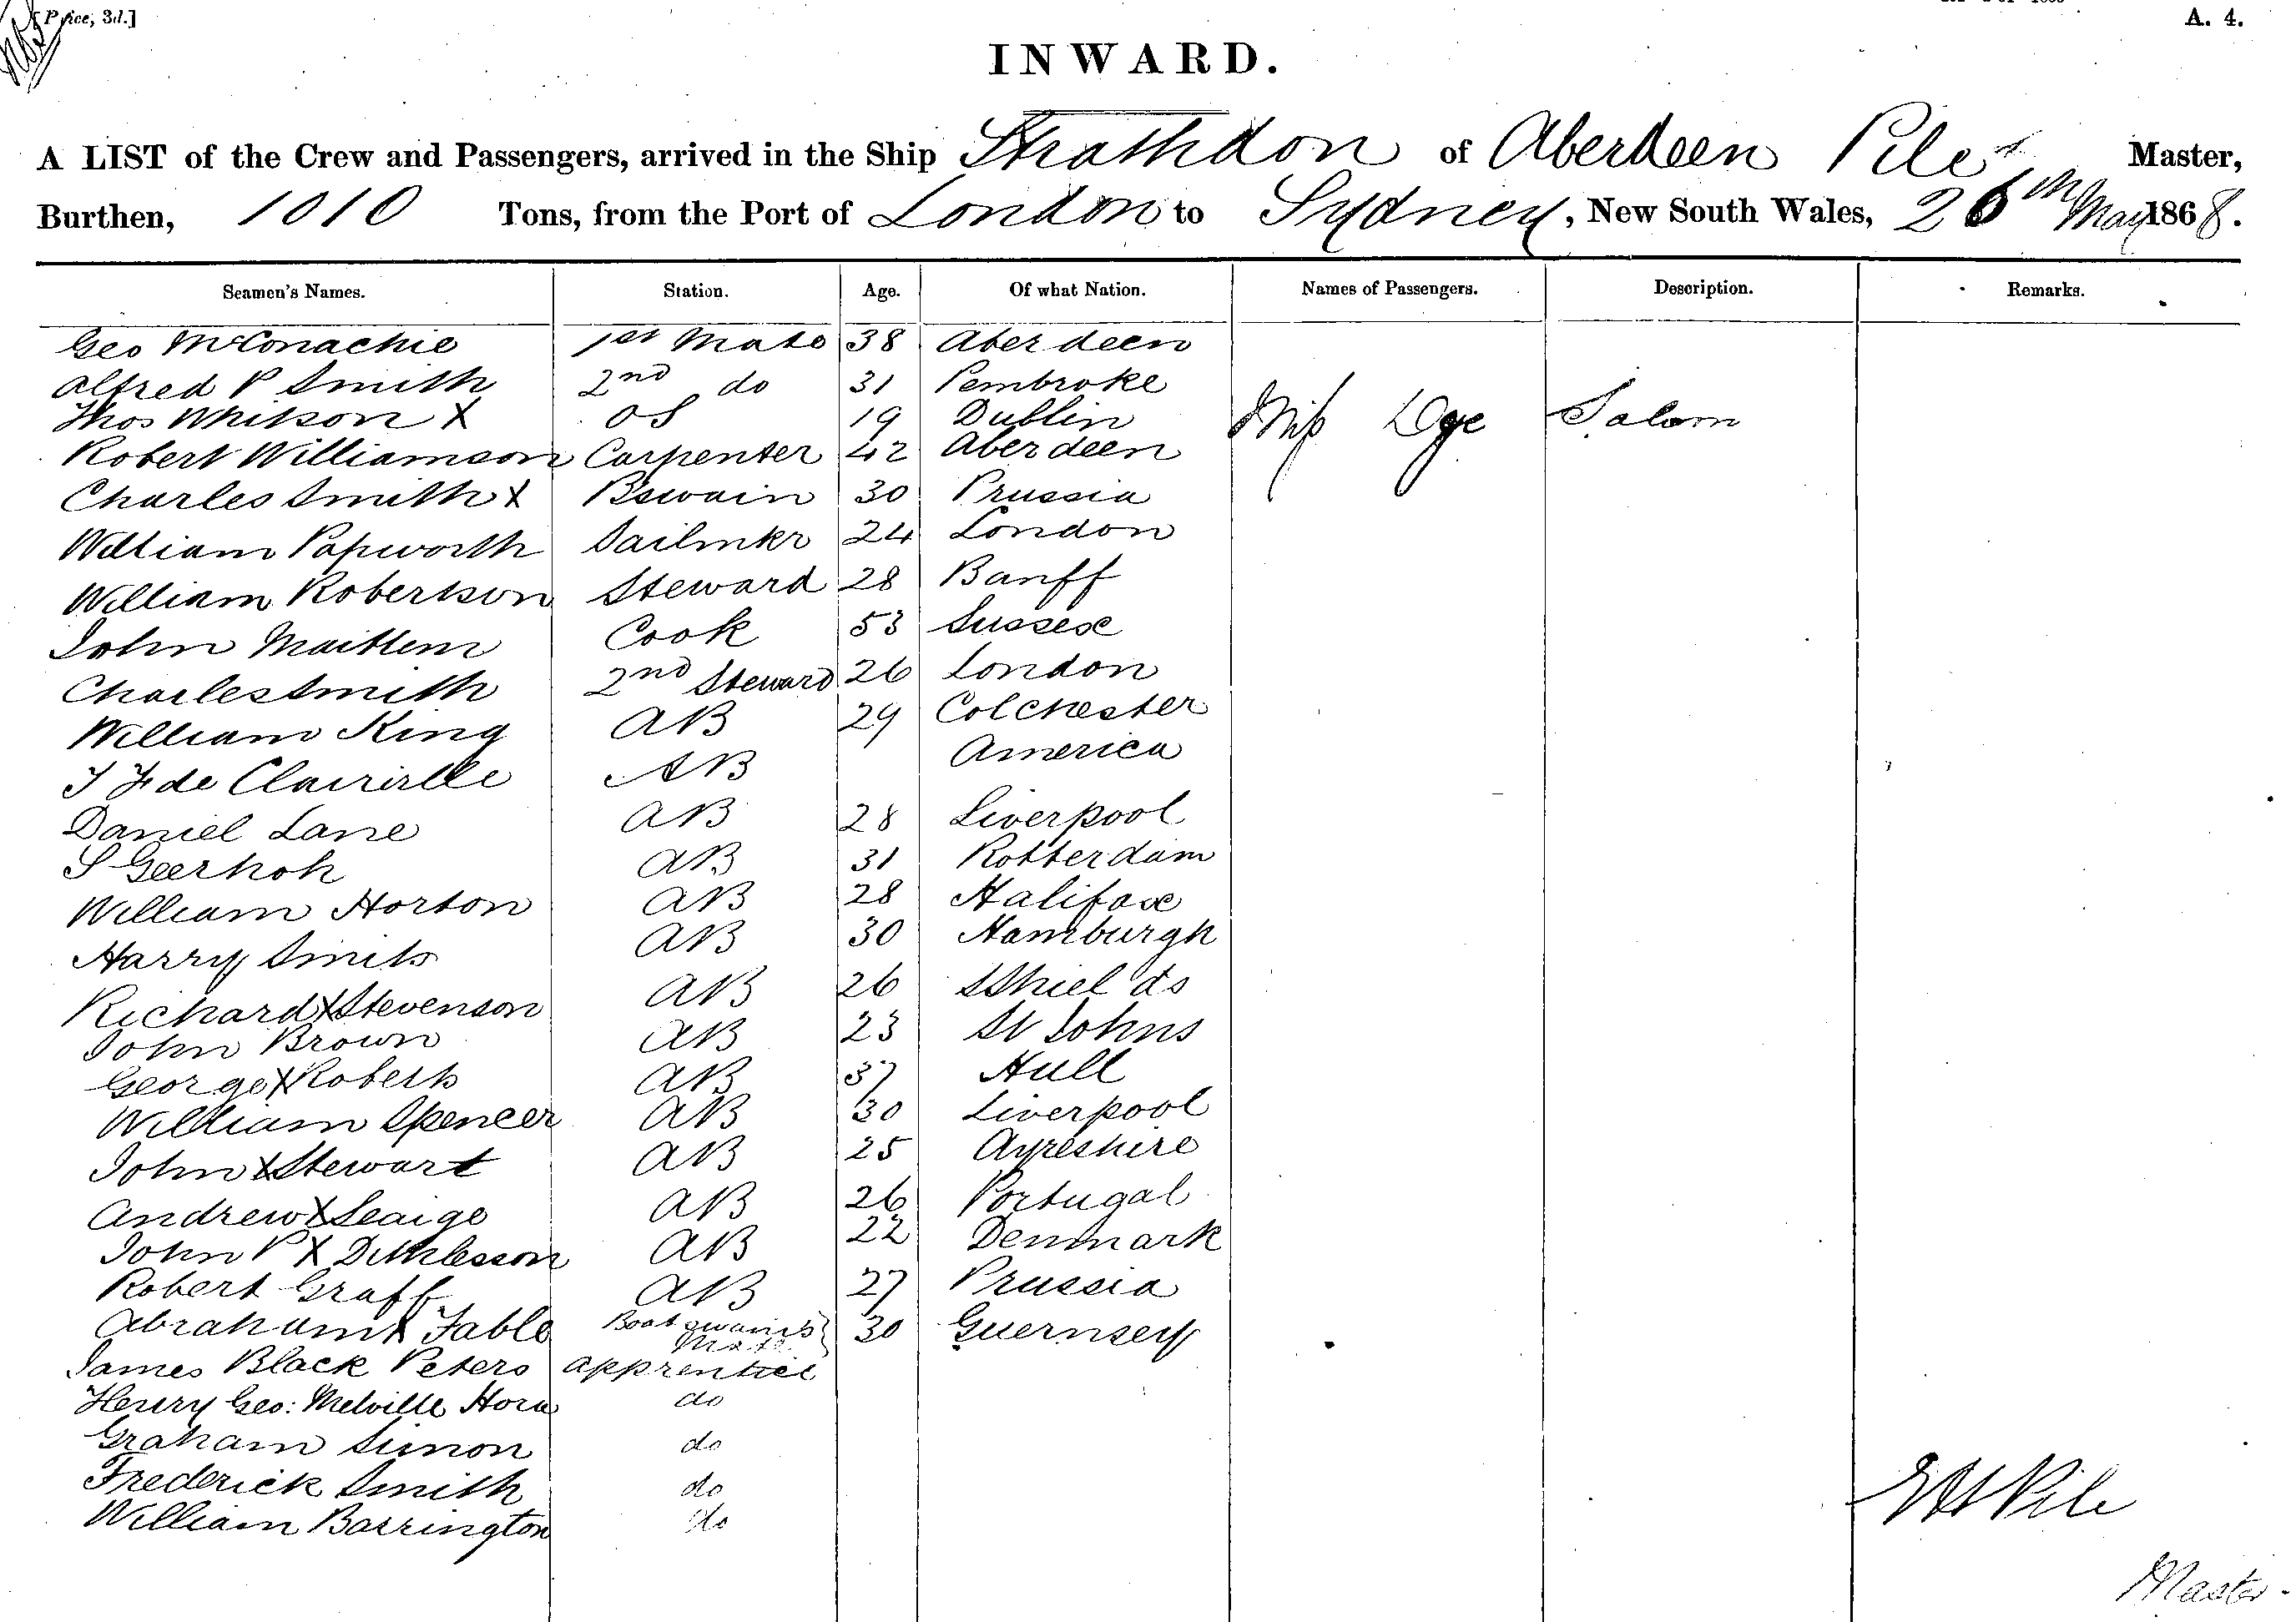 [Price, 3d.]
A. 4.
INWARD.
A LIST of the Crew and Passengers, arrived in the Ship Strathdon of Aberdeen Pile Master,
Burthen, 1010 Tons, from the Port of London to Sydney, New South Wales, 26th May 1868.
Seamen's Names. Station. Age. Of what Nation. Names of Passengers. Description. Remarks.
Geo McConachie 1st Mate 38 Aberdeen
Alfred P Smith 2nd do 31 Pembroke
Thos Whitson X OS 19 Dublin Miss Dye Saloon
Robert Williamson Carpenter 42 Aberdeen
Charles Smith X Bswain 30 Prussia
William Papworth Sailmkr 24 London
William Robertson Steward 28 Banff
John Maittem Cook 53 Sussex
Charles Smith 2nd Steward 26 London
William King AB 29 Colchester
de AB America
Daniel Lane AB 28 Liverpool
S AB 31 Rotterdam
William Horton AB 28 Halifax
Harry Smits AB 30 Hamburgh
Richard X Stevenson AB 26 SShields
John Brown AB 23 St Johns
George X Roberts AB 37 Hull
William Spencer AB 30 Liverpool
John X Stewart AB 25 Ayreshire
Andrew X AB 26 Portugal
John P X Dithlesson AB 22 Denmark
Robert Graff AB 27 Prussia
Abraham X Table Boatswains Mate 30 Guernsey
James Black Peters apprentice
Henry Geo: Melville Horn do
Graham Simon do
Frederick Smith do
William Barrington do
Pile
Master.